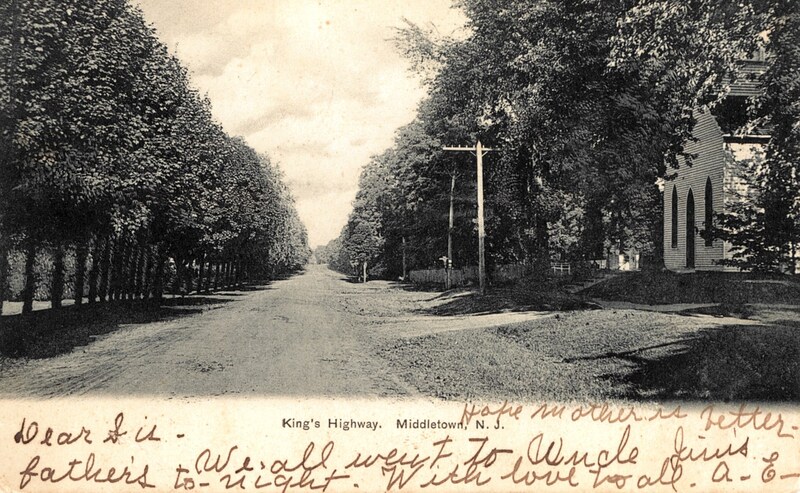 King's Highway. Middletown, N. J.
Hope mother is better.
Dear Sis -
We all went to Uncle Jim's
father's to-night. With love to all. A-E-